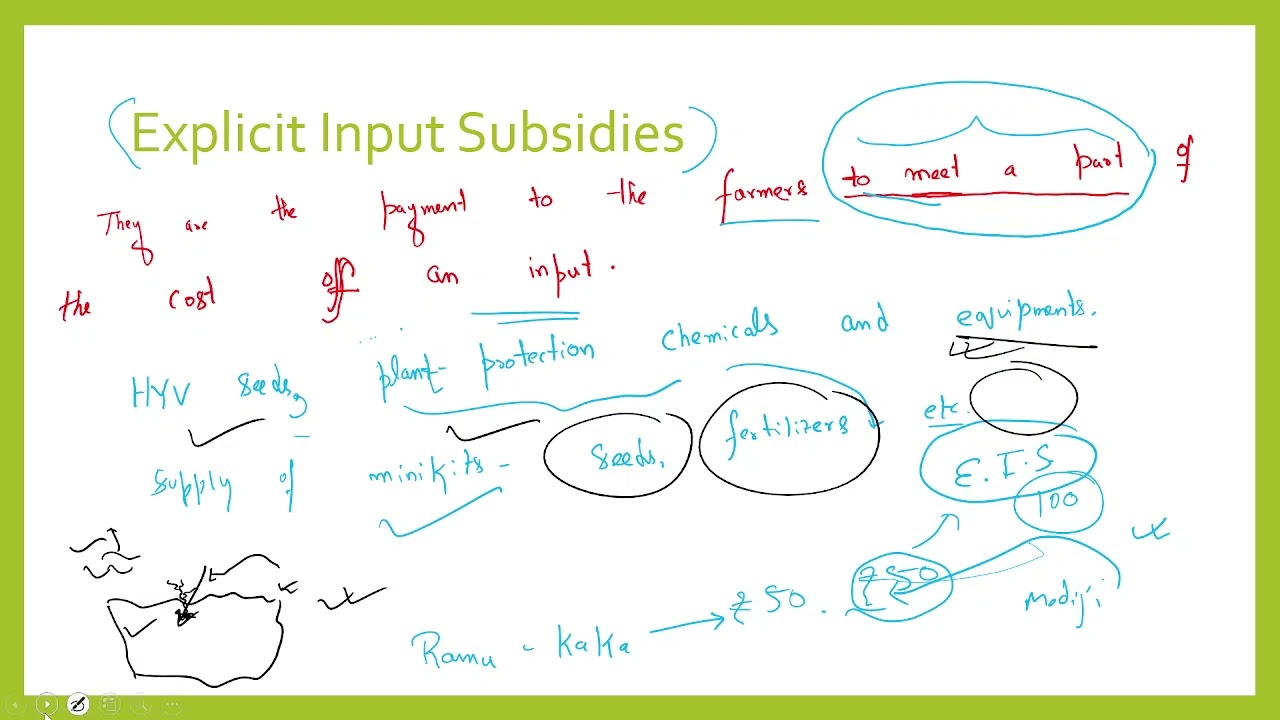 Explicit Input Subsidies
They are the payment to the farmers to meet a part of
the cost off an input.
HYV seeds, plant- protection chemicals and equipments.
supply of minikits - seeds, fertilizers etc.
E.I.S
100
Ramu - Kaka → ₹50. ₹50 Modiji